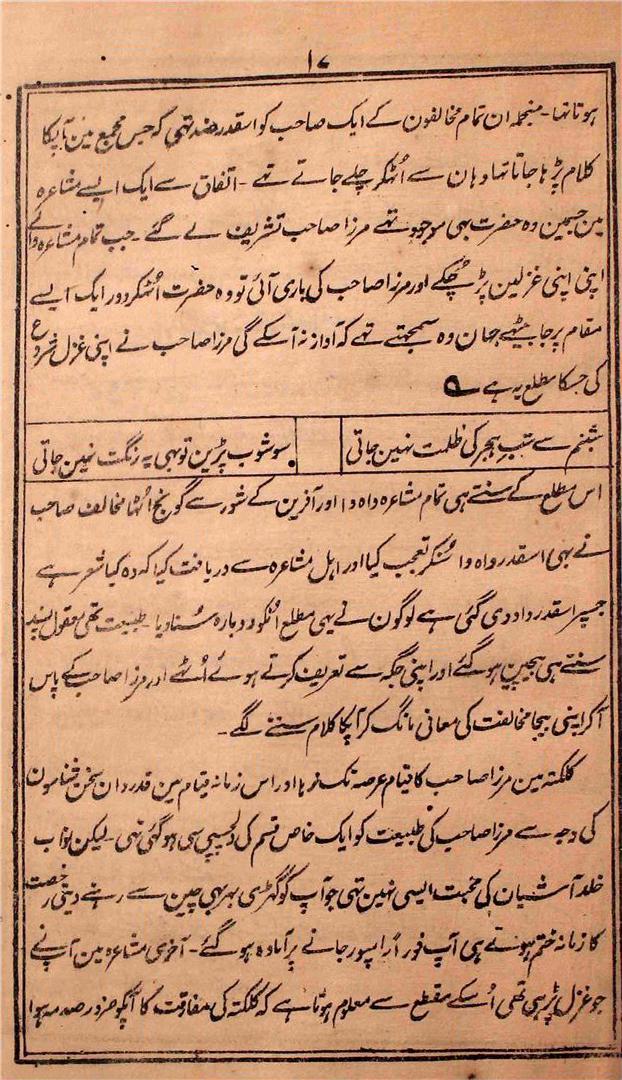 ۱۷
ہوتا تہا۔ منجملہ ان تمام مخالفون کے ایک صاحب کو اسقدر ضد تہی کہ جس مجمع مین آپکا
کلام پڑہا جاتا تہا وہان سے اُٹھکر چلے جاتے تہے۔ اتفاق سے ایک ایسے مشاعرہ
مین جسمین وہ حضرت بہی موجود تہے مرزا صاحب تشریف لے گئے۔ جب تمام مشاعرہ والے
اپنی اپنی غزلین پڑہ چُکے اور مرزا صاحب کی باری آئی تو وہ حضرت اُٹھکر دور ایک ایسے
مقام پر جا بیٹہے جہان وہ سمجہتے تہے کہ آواز نہ آ سکے گی مرزا صاحب نے اپنی غزل شروع
کی جسکا مطلع یہ ہے ؎
شبنم سے شبِ ہجر کی ظلمت نہین جاتی
سو شوب پڑین تو بہی یہ رنگت نہین جاتی
اس مطلع کے سنتے ہی تمام مشاعرہ واہ وا اور آفرین کے شور سے گونج اُٹھا مخالف صاحب
نے بہی اسقدر واہ وا سُنکر تعجب کیا اور اہل مشاعرہ سے دریافت کیا کہ وہ کیا شعر ہے
جسپر اسقدر داد دی گئی ہے لوگون نے یہی مطلع اُنکو دوبارہ سُنا دیا۔ طبیعت تھی معقول پسند
سنتے ہی بیچین ہو گئے اور اپنی جگہ سے تعریف کرتے ہوئے اُٹہے اور مرزا صاحب کے پاس
آکر اپنی بیجا مخالفت کی معافی مانگ کر آپکا کلام سننے لگے۔
کلکتہ مین مرزا صاحب کا قیام عرصہ تک نرہا اور اس زمانہ قیام مین قدردان سخن شناسون
کی وجہ سے مرزا صاحب کی طبیعت کو ایک خاص قسم کی دلچسپی سی ہو گئی تہی۔ لیکن نواب
خلد آشیان کی محبت ایسی نہین تہی جو آپ کو گھڑی بہر بہی چین سے رہنے دیتی رخصت
کا زمانہ ختم ہوتے ہی آپ فوراً رامپور جانے پر آمادہ ہو گئے۔ آخری مشاعرہ مین آپ نے
جو غزل پڑہی تھی اُسکے مقطع سے معلوم ہوتا ہے کہ کلکتہ کی مفارقت کا آپکو ضرور صدمہ ہوا